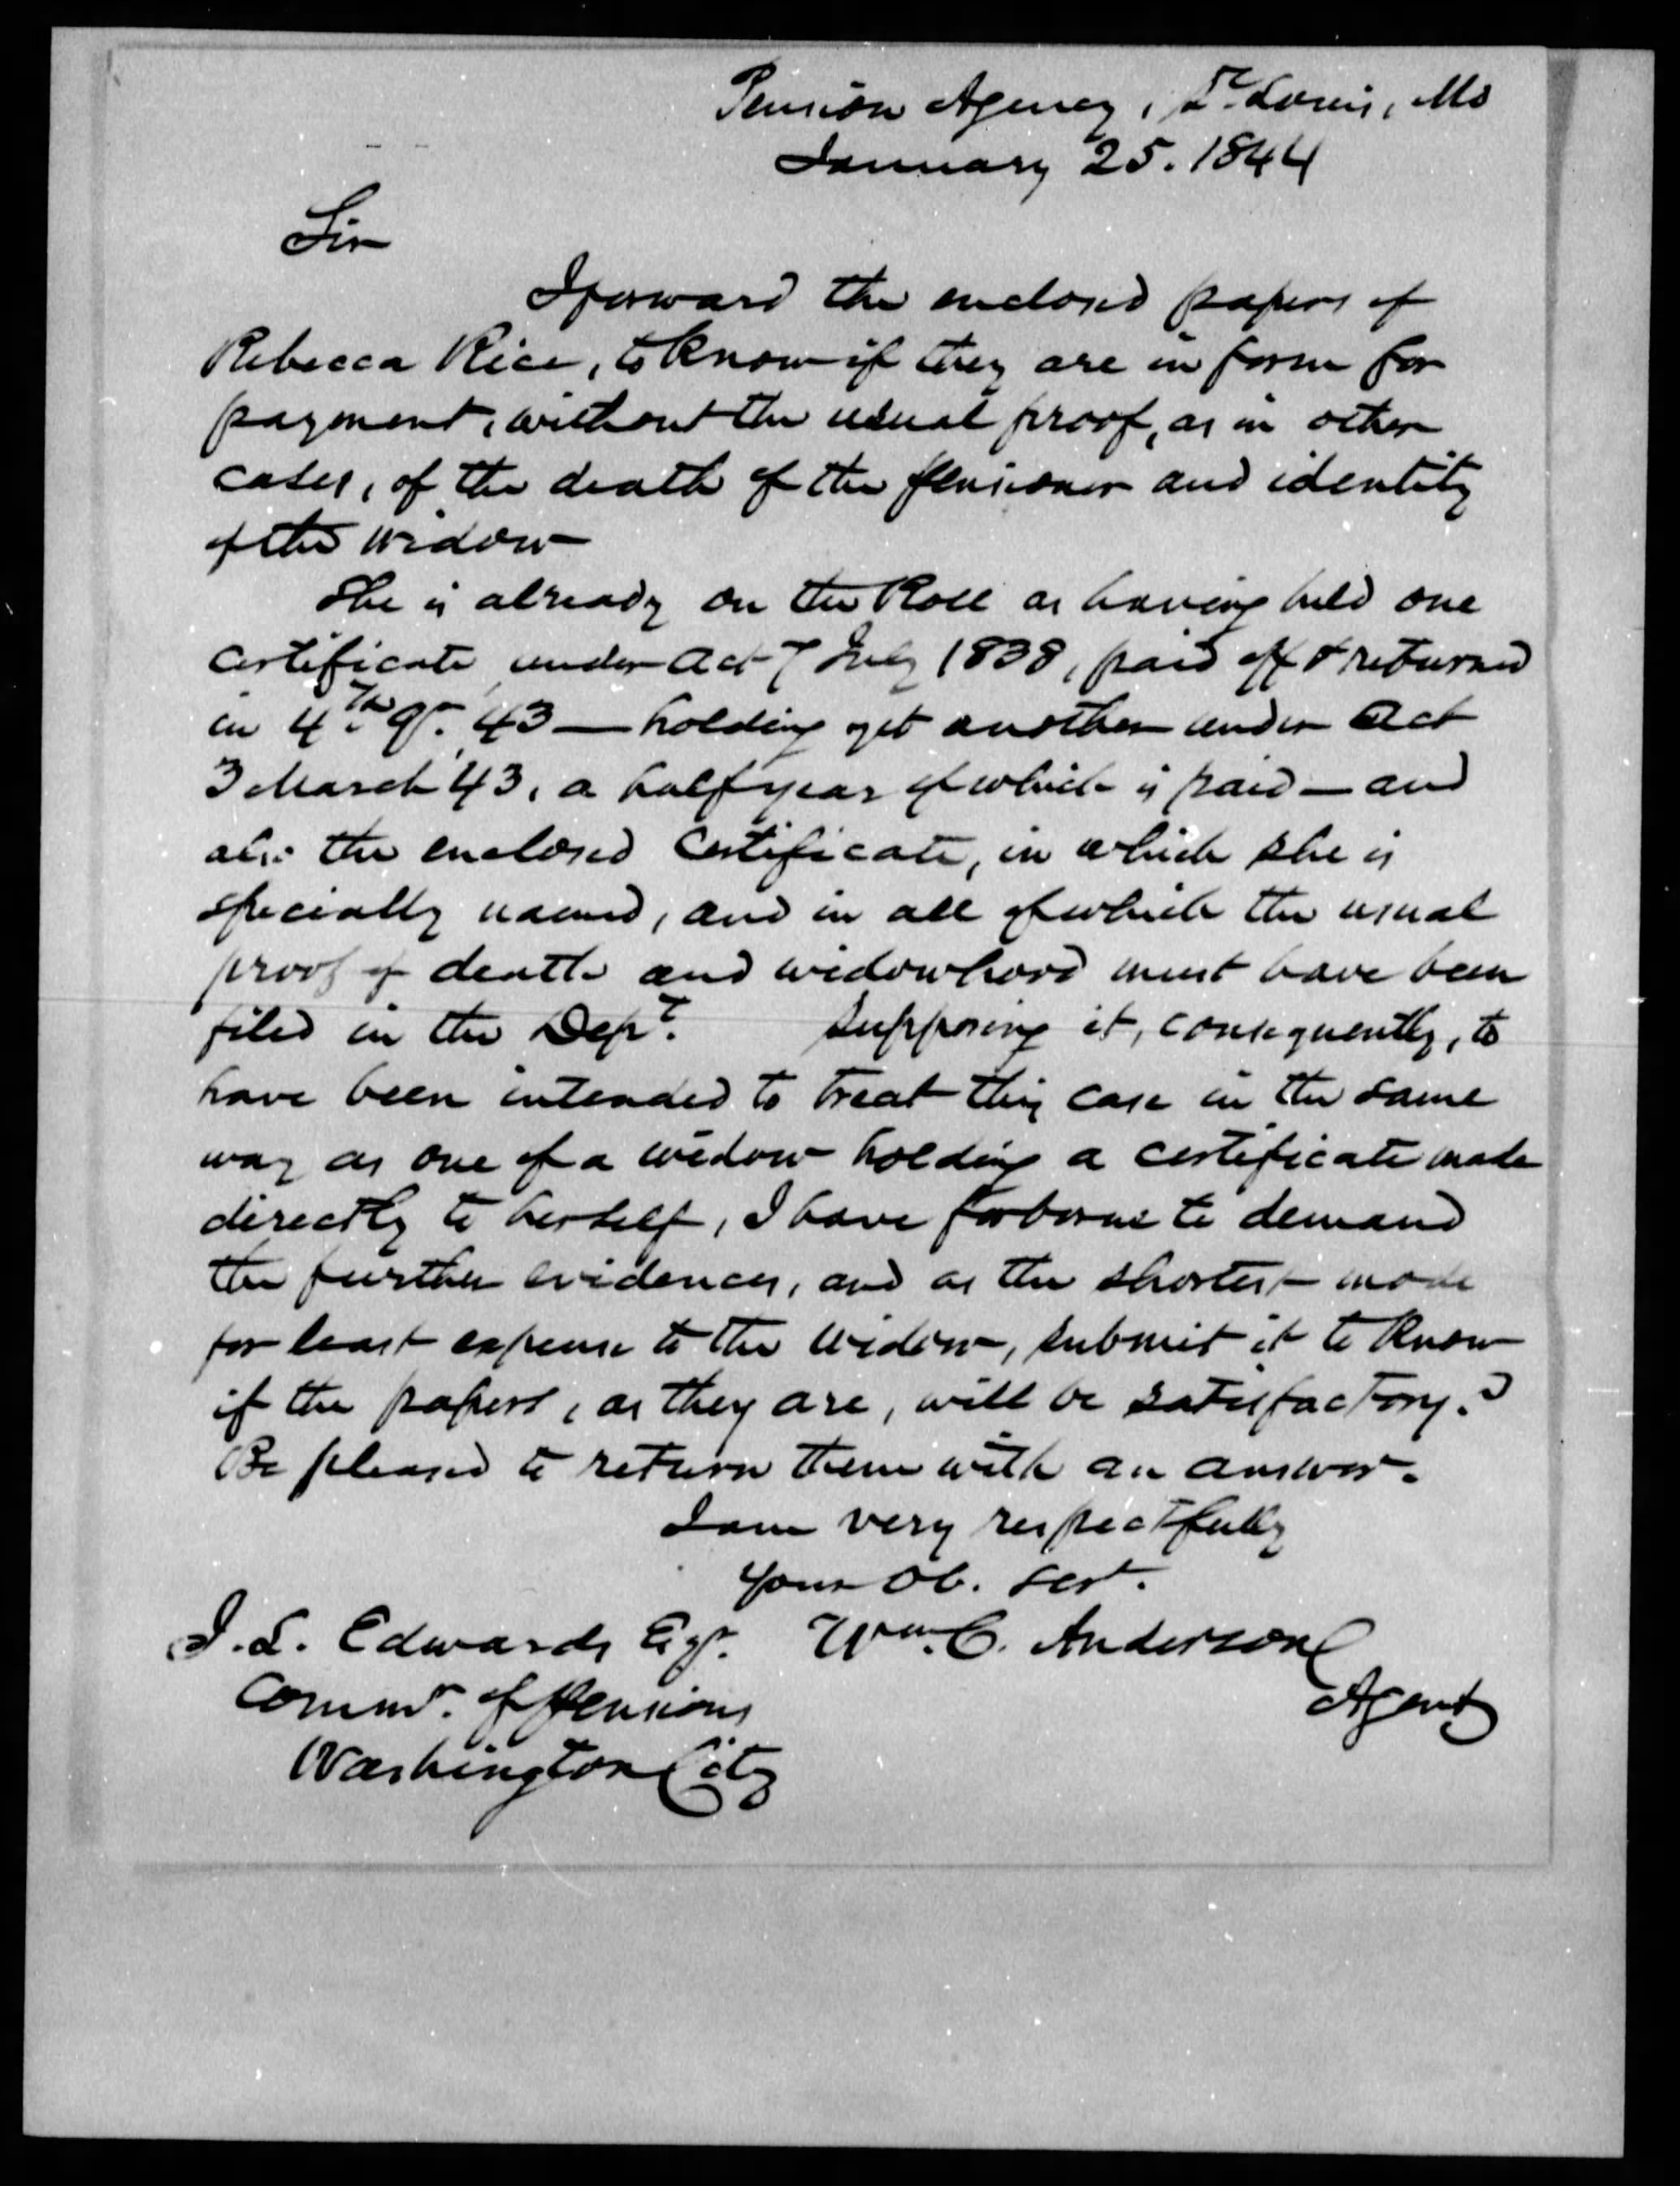 Pension Agency, St. Louis, Mo
January 25. 1844
Sir
I forward the enclosed papers of
Rebecca Rice, to know if they are in form for
payment, without the usual proof, as in other
cases, of the death of the pensioner and identity
of the widow
She is already on the Roll as having held one
certificate under Act 7 July 1838, paid off & returned
in 4th qr. 43 — holding yet another under Act
3 March 43, a half year of which is paid — and
also the enclosed certificate, in which she is
specially named, and in all of which the usual
proof of death and widowhood must have been
filed in the Dept. Supposing it, consequently, to
have been intended to treat this case in the same
way as one of a widow holding a certificate made
directly to herself, I have forborne to demand
the further evidences, and as the shortest mode
for least expense to the widow, submit it to know
if the papers, as they are, will be satisfactory.?
Be pleased to return them with an answer.
I am very respectfully
your Ob. Sevt.
J. L. Edwards Esqr. Wm. C. Anderson
Agent
Commr. of Pensions
Washington City